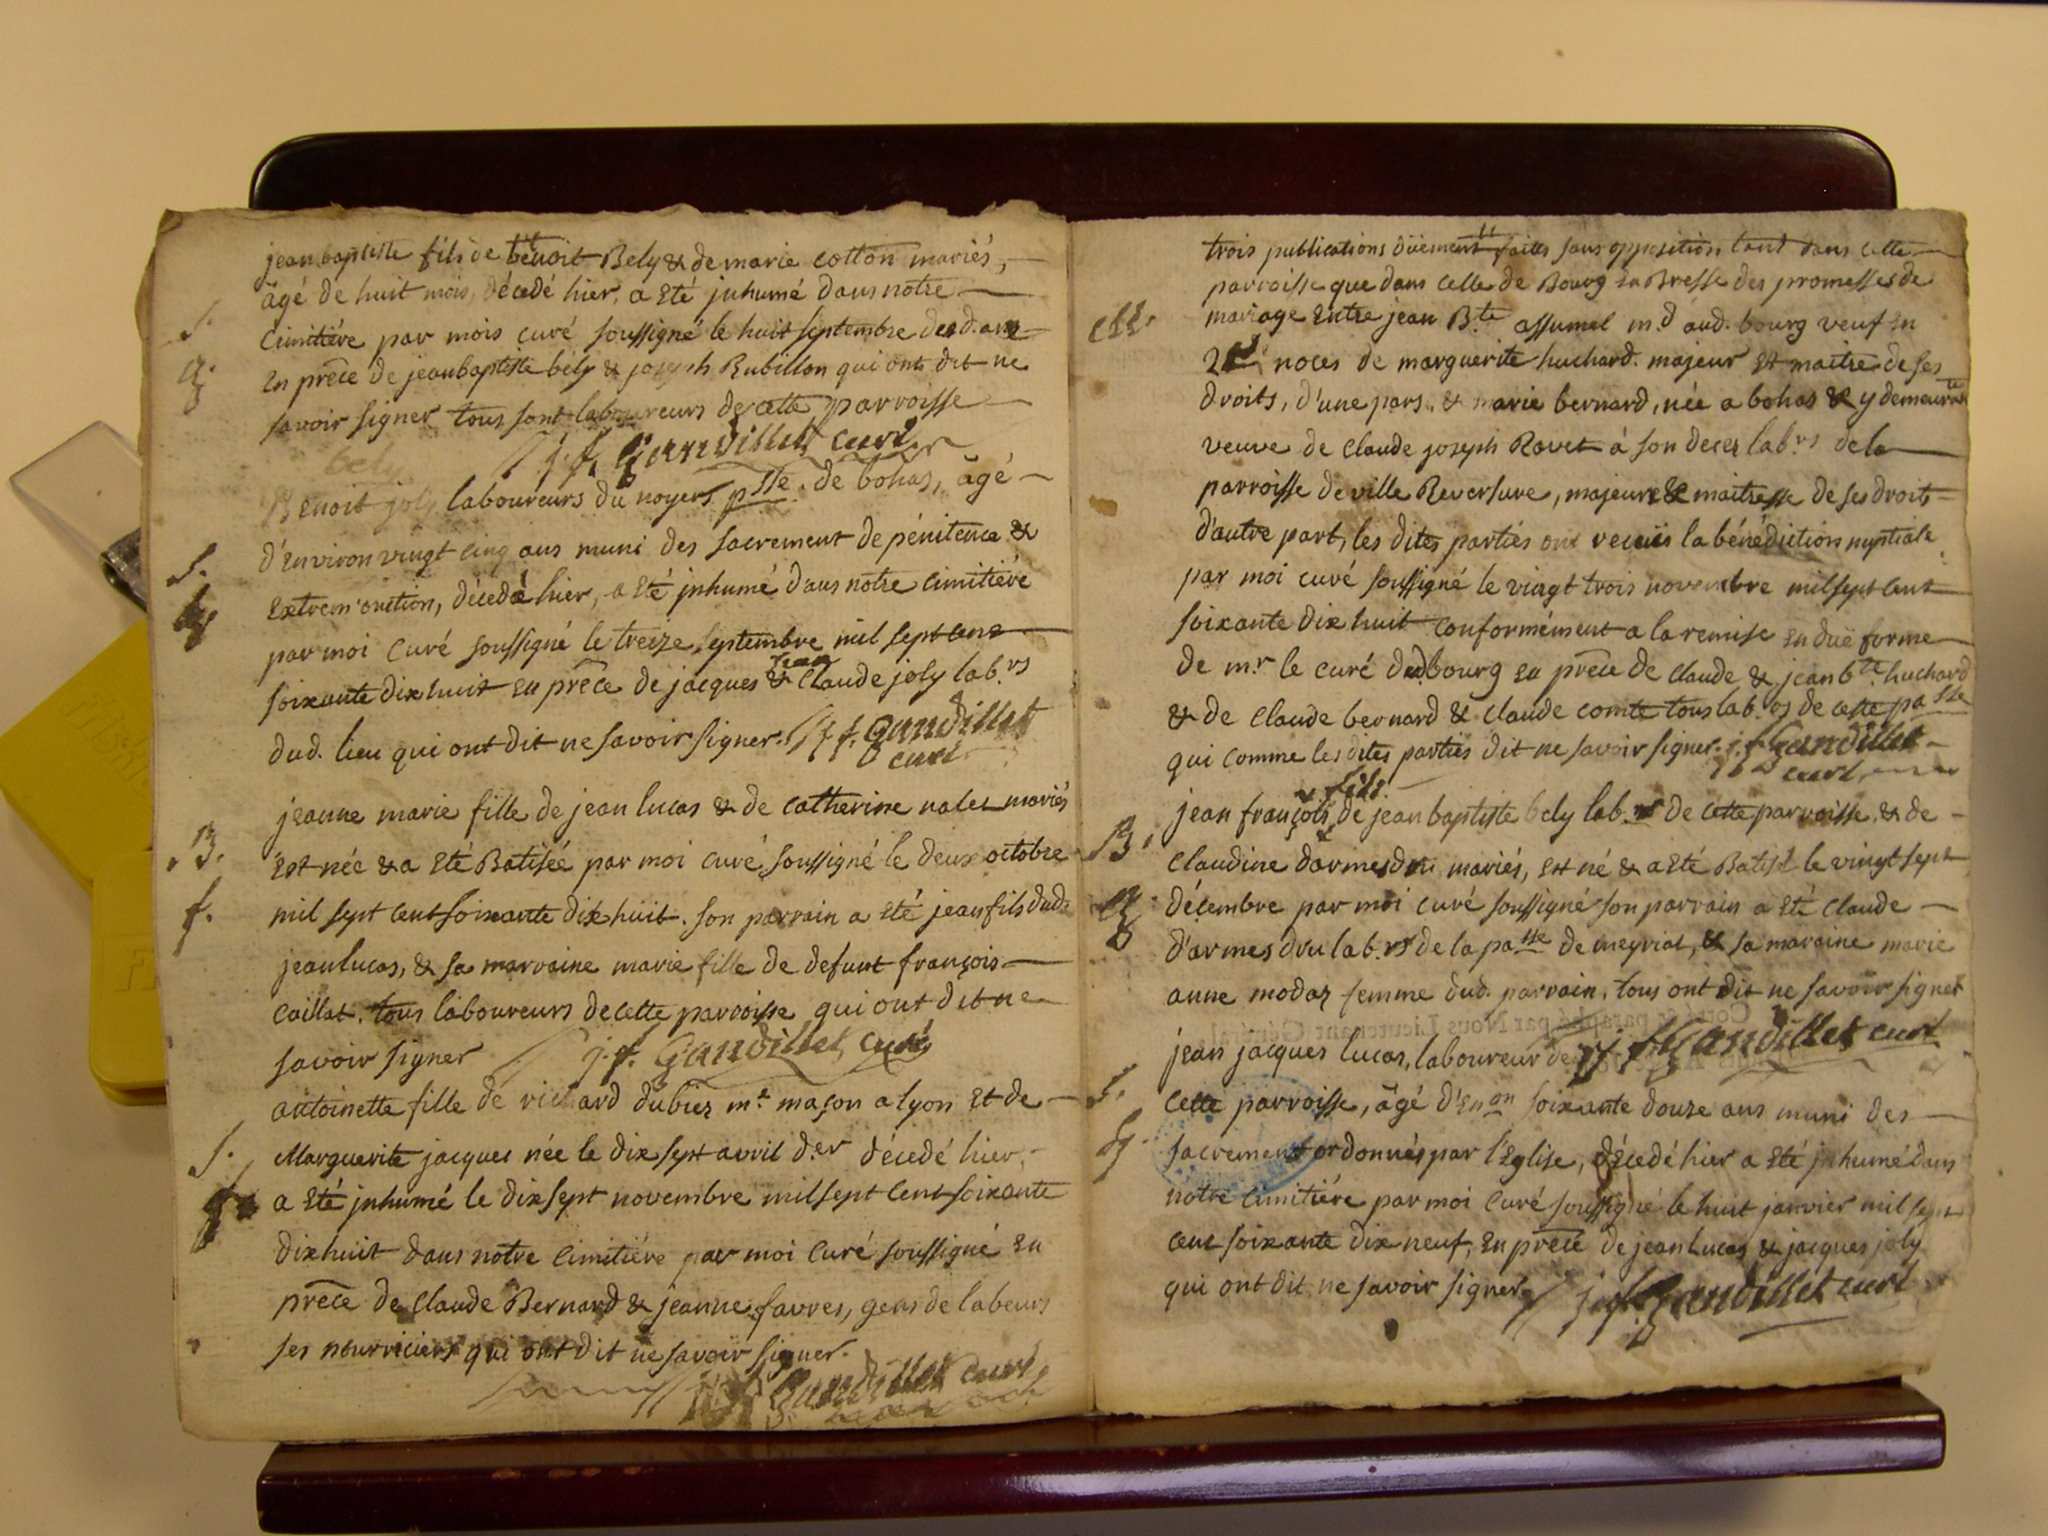 jean baptiste fils de benoit Bely & de marie cotton mariés,
âgé de huit mois, décedé hier, a Eté jnhumé dans notre
S. cimitiére par mois curé soussigné le huit septembre
G. En prêce de jean baptiste bély & joseph Rubillon qui ont dit ne
savoir signer tous sont laboureurs de cette parroisse
j. f. Gandillet curé
bely
Benoit joly laboureurs du noyers psse. de bohas, âgé
S. d'Environ vingt cinq ans muni des sacrement de pénitence &
Extrem'onction, décedé hier, a Eté jnhumé dans notre cimitiére
par moi curé soussigné le treize septembre mil sept cens
jean
soixante dix huit En prêce de jacques & Claude joly lab.rs
dud. lieu qui ont dit ne savoir signer. j f. Gandillet
curé
jeanne marie fille de jean lucas & de catherine nalet mariés
B. Est née & a Eté Batiséé par moi curé soussigné le deux octobre
f. mil sept cent soixante dix huit. son parrain a Eté jean fils dud.
jean lucas, & sa marraine marie fille de defunt françois
Caillat. tous laboureurs de cette parroisse qui ont dit ne
savoir signer j. f. Gandillet, curé
antoinette fille de richard dubiez m.e maçon a lyon Et de
S. Marguerite jacques née le dix sept avril d.er décedé hier,
a Eté jnhumé le dix sept novembre mil sept cent soixante
dix huit dans notre cimitiére par moi Curé soussigné En
prêce de Claude Bernard & jeanne favres, gens de labeurs
ses nourriciers qui ont dit ne savoir signer.
j f Gandillet curé
trois publications düement faites sans opposition tant dans cette
parroisse que dans celle de Bourg En Bresse des promesses de
M. mariage Entre jean B.te assumel m.d aud. bourg veuf En
noces de marguerite huchard. majeur Et maitre de ses
droits, d'une pars, & marie bernard, née a bohas & y demeurante
veuve de Claude joseph Ravet à son deces lab.rs de la
parroisse de ville Reversure, majeure & maitresse de ses droits
d'autre part, les dites parties ont recuës la bénédiction nuptiale
par moi curé soussigné le vingt trois novembre mil sept cent
soixante dix huit conformément a la remise En duë forme
de m.r le curé dud. bourg En prêce de Claude & jean b.te huchard
& de Claude bernard & Claude comte tous lab.rs de cette passe
qui comme les dites parties dit ne savoir signer. j. f Gandillet
curé
fils
jean françois de jean baptiste bely lab.r de cette parroisse, & de
B. Claudine darmesdru mariés, Est né & a Eté Batisé le vingt sept
G. décembre par moi curé soussigné son parrain a Eté Claude
d'armes dru lab.rs de la passe de meyriat, & sa maraine marie
anne modaz femme dud. parrain, tous ont dit ne savoir signer
jean jacques lucas, laboureur de j f Gandillet curé
S. Cette parroisse, âgé d'Enon soixante douze ans muni des
sacrement ordonnés par l'Eglise, décedé hier a Eté jnhumé dans
notre cimitiére par moi Curé soussigné le huit janvier mil sept
cent soixante dix neuf, En prêce de jean Lucas & jacques joly
qui ont dit ne savoir signer j. f. Gandillet curé